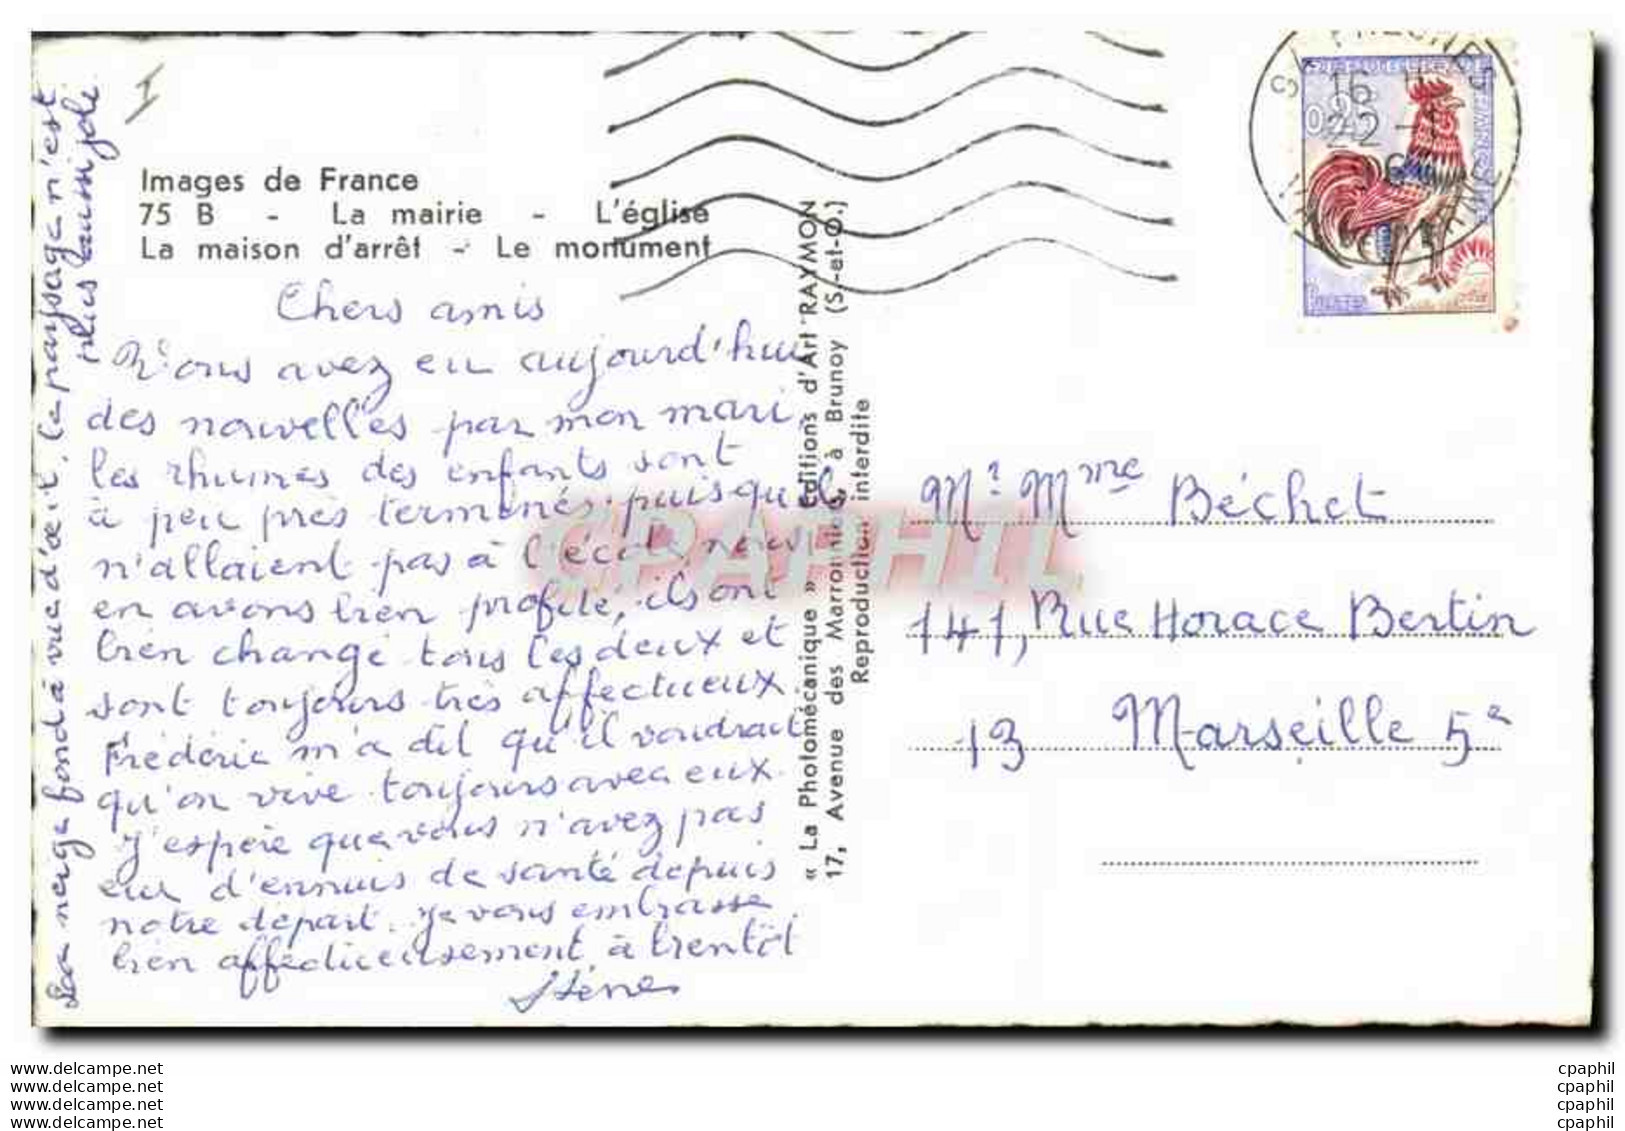 I
Images de France
75 B - La mairie - L'église
La maison d'arrêt - Le monument
Chers amis
Vous avez eu aujourd'hui
des nouvelles par mon mari,
les rhumes des enfants sont
à peu près terminés. puisqu'ils
n'allaient pas à l'école nous
en avons bien profité, ils ont
bien changé tous les deux et
sont toujours très affectueux.
Frédéric m'a dit qu'il voudrait
qu'on vive toujours avec eux.
J'espère que vous n'avez pas
eu d'ennuis de santé depuis
notre départ. Je vous embrasse
bien affectueusement à bientôt
La neige fond à vue d'œil. Le paysage n'est
plus
« La Photomécanique » Editions d'Art RAYMON
17, Avenue des Marronniers, à Brunoy (S.-et-O.)
Reproduction interdite
16 H
22 -
0,25
POSTES
Mr. Mme Béchet
141, Rue Horace Bertin
13 Marseille 5e
CPAPHIL
www.delcampe.net
www.delcampe.net
www.delcampe.net
www.delcampe.net
cpaphil
cpaphil
cpaphil
cpaphil